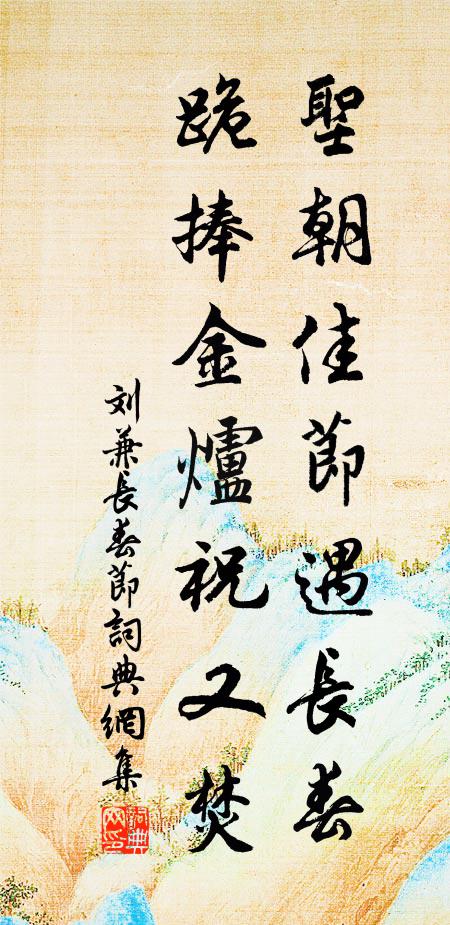 聖朝佳節遇長春
跪捧金爐祝又焚
刘兼長春節詞典網集
詞典网印